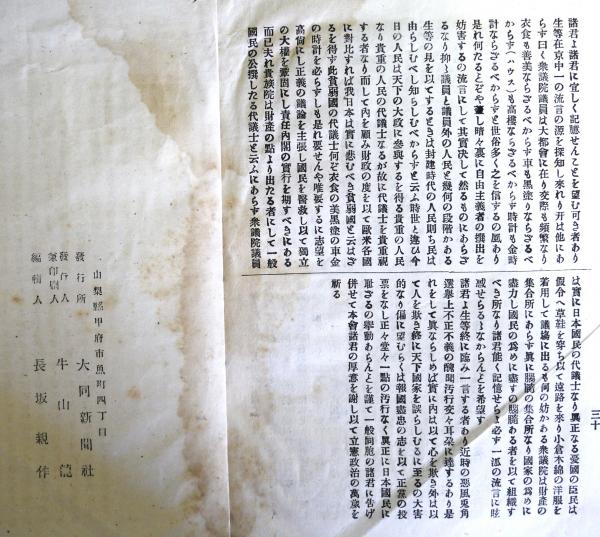 諸君よ諸君に宜しく記憶せんことを望む可き者あり
生等在京中一の流言の源を探知し來れり开は他にあ
らず曰く衆議院議員は大都會に在り交際も頻繁なり
衣食も善美ならざるべからず車も黑塗りならざるべ
からず(ハウス)も高樓ならざるべからず時計も金時
計ならざるべからずと世俗多く之を信するの風あり
是れ何たることぞや蓋し暗々裏に自由主義者の撰出を
妨害するの流言にして其實决して然るものにあらざ
るなり抑々議員と議員外の人民と幾何の段階かある
生等の見を以てするときは封建時代の人民則ち民は
由らしむべし知らしむべからずと云ふ時世と違ひ今
日の人民は天下の大政に參與するを得る貴重の人民
なり貴重の人民の代議士なるが故に代議士を貴重視
する者なり而して内を顧み財政の度を以て歐米各國
に對比すれば我日本は實に悲むべき貧弱國と云はざ
るを得す此貧弱國の代議士何ぞ衣食の美黑塗の車金
の時計を必らずしも是れ要せんや唯要するに志望を
高尚にし正義の議論を主張し國民を醫救し以て獨立
の大權を鞏固にし責任内閣の實行を期すべきにある
而已夫れ貴族院は財産の點より出たる者にして一般
國民の公撰したる代議士と云ふにあらず衆議院議員
は實に日本國民の代議士なり眞正なる愛國の臣民は
假令へ草鞋を穿ち以て遠路を來り小倉木綿の洋服を
着用して議塲に出るも何の妨かある衆議院は財産の
集合所にあらす眞に腦髓の集合所なり國家の爲めに
盡力し國民の爲めに盡すの腦髓ある者を以て組織す
べき所なり諸君能く記憶せらよ必す一派の流言に眩
惑せらるゝなからんことを希望す
諸君よ生等終に臨み一言する者あり近時の惡風兎角
選擧上不正不義の醜聞汚行交々耳朶に達するあり是
れをして眞ならしめば實に内は以て心を欺き外は以
て人を欺き終に天下國家を誤らしむるに至るの大害
的なり偏に望むらくは報國盡忠の志を以て正當の投
票をなし正々堂々一點の汚行なく眞正に日本國民に
耻ざるの擧動あらんことを謹て一般同胞の諸君に告げ
併せて本會諸君の厚意を謝し以て立憲政治の萬歳を
祈る
三十
山梨縣甲府市魚町四丁目
發行所 大同新聞社
發行人
兼印刷人 牛山
編輯人 長坂親作